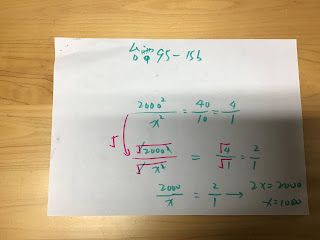 95-15b
2000²/x² = 40/10 = 4/1
√ √2000²/√x² = √4/√1 = 2/1
2000/x = 2/1 → 2x=2000
x=1000